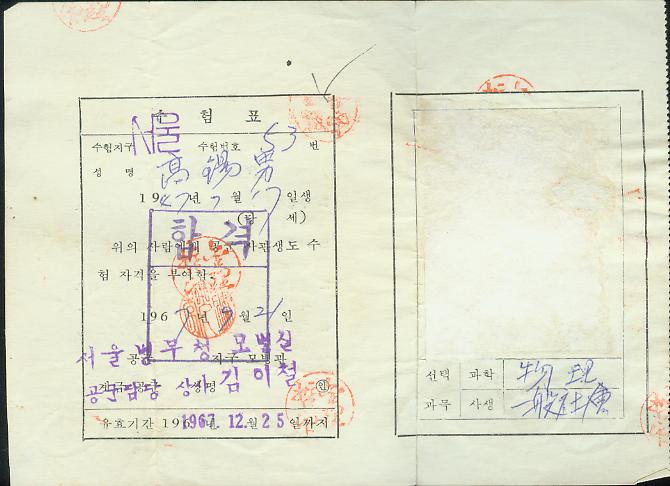 수 험 표
수험지구 서울 수험번호 53 번
성 명 高錫勇
1947年 7 월 17 일생
(당 세)
합격
위의 사람에게 공군 사관생도 수
험 자격을 부여함.
1967 년 9 월 21 일
공군 지구 모병관
서울병무청 모병실
계급 성명 ㊞
공군담당 상사 김이철
유효기간 196 년 월 일까지
1967. 12. 25
선택 과학 物理
과목 사생 一般社会